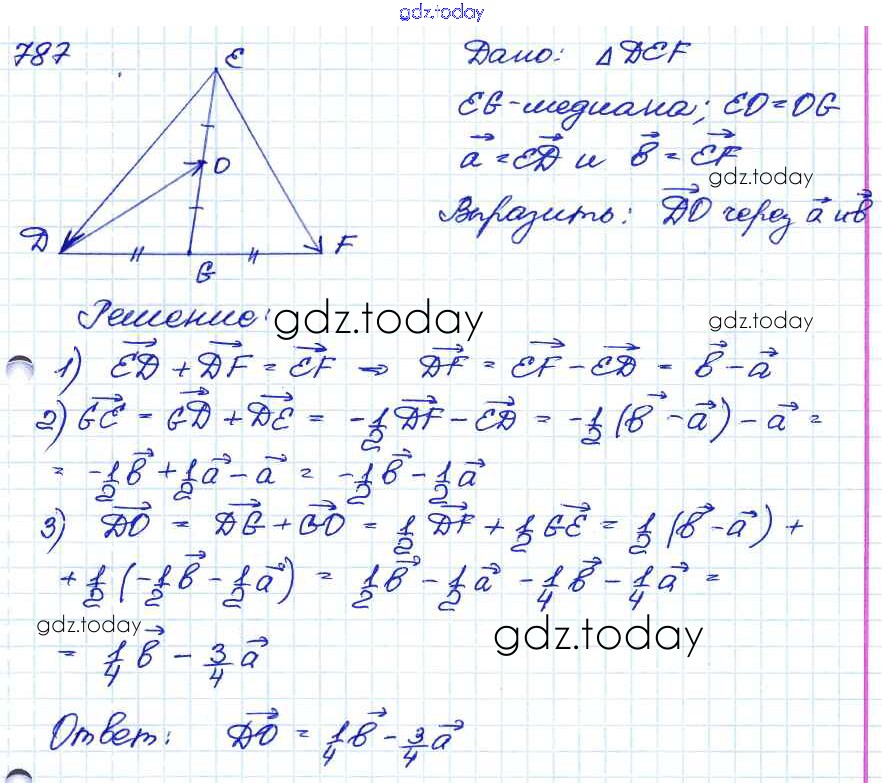 gdz.today
787
E
O
D
G
F
Дано: △DEF
EG-медиана; EO=OG
a⃗ = ED⃗ и b⃗ = EF⃗
gdz.today
Выразить: DO⃗ через a⃗ и b⃗
Решение:
gdz.today
gdz.today
1) ED⃗ + DF⃗ = EF⃗ ⇒ DF⃗ = EF⃗ - ED⃗ = b⃗ - a⃗
2) GE⃗ = GD⃗ + DE⃗ = -1/2 DF⃗ - ED⃗ = -1/2 (b⃗ - a⃗) - a⃗ =
= -1/2 b⃗ + 1/2 a⃗ - a⃗ = -1/2 b⃗ - 1/2 a⃗
3) DO⃗ = DG⃗ + GO⃗ = 1/2 DF⃗ + 1/2 GE⃗ = 1/2 (b⃗ - a⃗) +
+ 1/2 (-1/2 b⃗ - 1/2 a⃗) = 1/2 b⃗ - 1/2 a⃗ - 1/4 b⃗ - 1/4 a⃗ =
gdz.today
gdz.today
= 1/4 b⃗ - 3/4 a⃗
Ответ: DO⃗ = 1/4 b⃗ - 3/4 a⃗